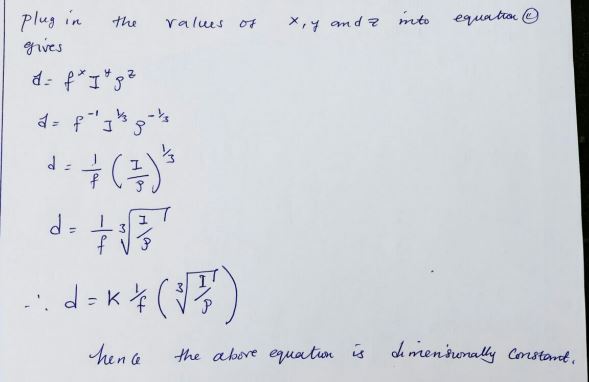 plug in the values of x, y and z into equation ©
gives
d = f^x I^y ρ^z
d = f^-1 I^1/3 ρ^-1/3
d = 1/f (I/ρ)^1/3
d = 1/f ∛(I/ρ)
∴ d = K 1/f (∛(I/ρ))
hence the above equation is dimensionally constant.